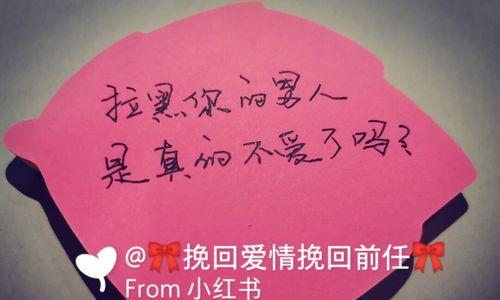 拉黑你的男人
是真的不爱了吗?
@🎀挽回爱情挽回前任🎀
From 小红书